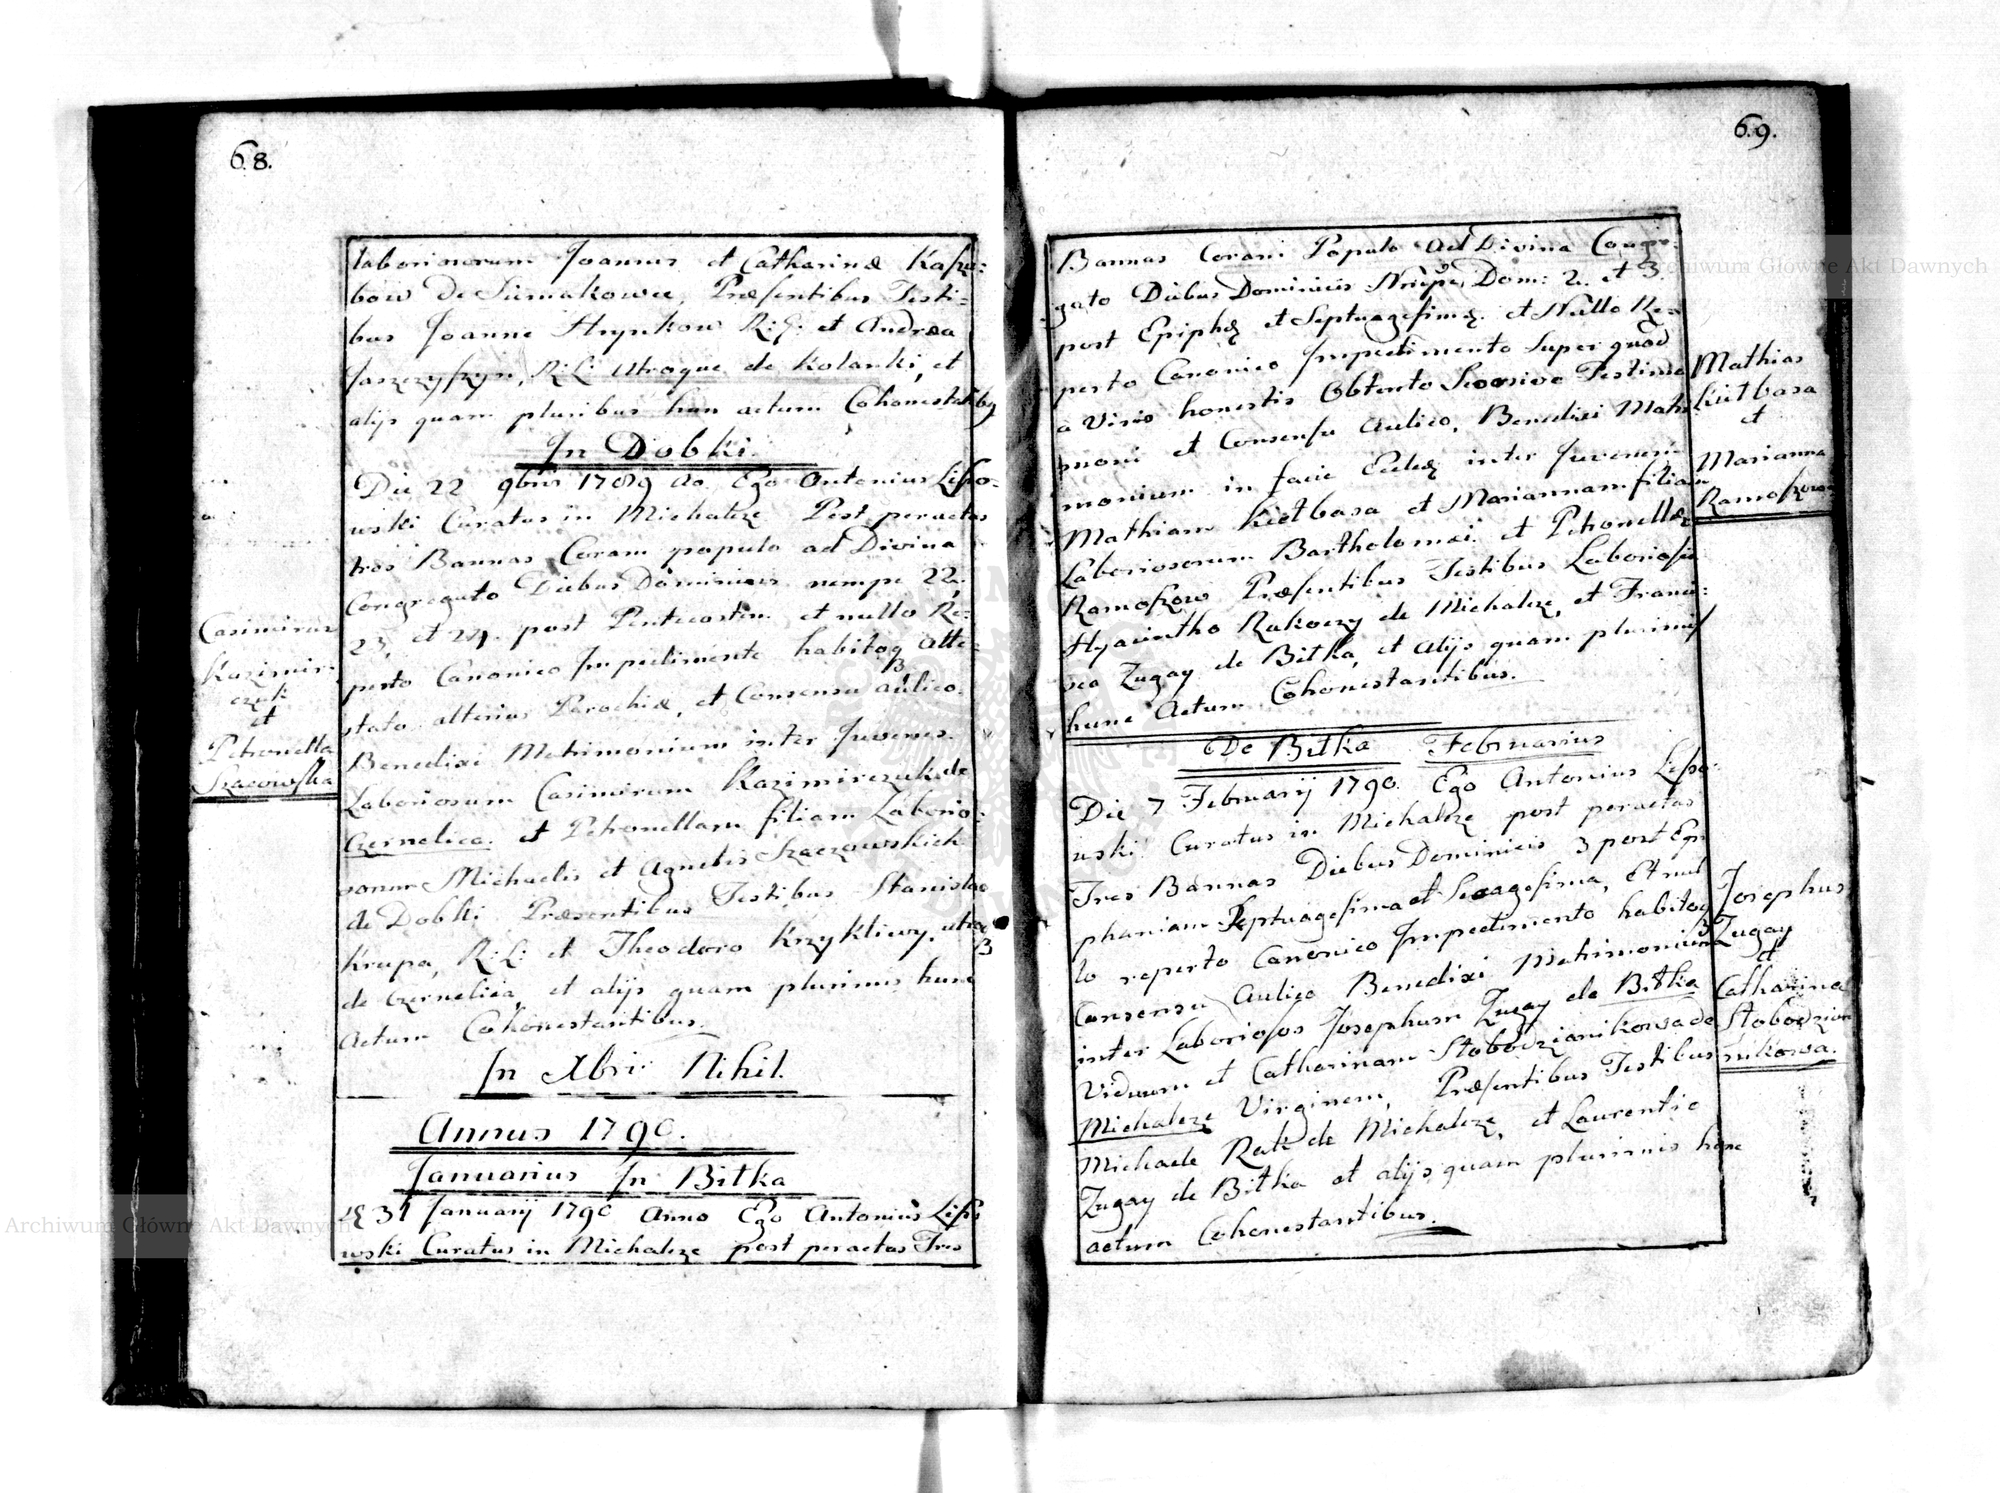 68.
laboriosorum Joannis et Catharinæ Kaszu:
bow De Siemakowce, Præsentibus Testi=
bus Joanne Hrynkow R: G: et Andrea
R: L: utroque de Kolanki, et
alijs quam pluribus hun actum Cohonestatibq
In Dobki.
Die 22 9bris 1789 Ao. Ego Antonius Lipo-
wski Curatus in Michalcze Post peractas
tres Bannas Coram populo ad Divina
Congregato Diebus Dominicis nempe 22,
23, et 24. post Pentecosten et nullo Re-
perto Canonico Impedimento habitoq Atte-
B
stato alterius Parochiæ, et Consensu aulico.
Benedixi Matrimonium inter Juvenes.
Laboriosum Casimirum Kazimirczuk de
Czernelica. et Petronellam filiam Laborio-
sorum Michaelis et Agnetis Szaczowskich
de Dobki Præsentibus Testibus Stanislao
Krupa, R: L: et Theodoro Krzykliwy, utroq
B
de Czernelica, et alijs quam plurimis hunc
Actum Cohonestantibus.
In Xbri Nihil.
Annus 1790.
Januarius In Bitka
31 Januarij 1790 Anno Ego Antonius Lipo
wski Curatus in Michalcze post peractas Tres
Casimirus
Kazimir-
czuk
et
Petronella
Szacowska
69.
Bannas Coram Populo ad Divina Congre:
gato Diebus Dominicis Nempe Dom: 2. et 3.
post Epiphæ et Septuagesimæ et Nullo Re=
perto Canonico Impedimento Super quod
a Viris honestis Obtento
et Consensu Aulico, Benedixi Matri
monium in facie Eccliæ inter Juvenem
Mathiam Kiełbasa et Mariannam filiam
Laboriosorum Bartholomæi et Petronellæ
Ramoszow Præsentibus Testibus Laboriosis
Hyacintho Rakoczy de Michalcze, et Franci:
sco Zugay de Bitka, et Alijs quam plurimis
hunc Actum Cohonestantibus.
De Bitka Februarius
Die 7 Februarij 1790. Ego Antonius Lipo-
wski Curatus in Michalcze post peractas
Tres Bannas Diebus Dominicis 3 post Epi
phaniam Septuagesima et Sexagesima, Et nul
lo reperto Canonico Impedimento habitoq
B
Consensu Aulico Benedixi Matrimonium
inter Laboriosos Josephum Zugay de Bitka
Viduum et Catharinam Słobodzianikowa de
Michalcze Virginem, Præsentibus Testibus
Michaele Rak de Michalcze, et Laurentio
Zugay de Bitka et alijs quam plurimis hunc
actum Cohonestantibus.
Mathias
Kiełbasa
et
Marianna
Ramoszowa
Josephus
Zugay
et
Catharina
Słobodzian
nikowa.
Archiwum Główne Akt Dawnych
Archiwum Główne Akt Dawnych